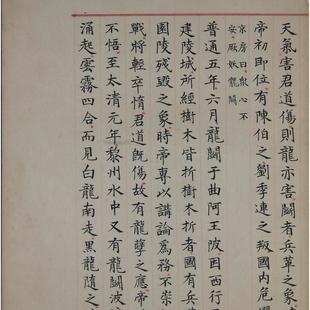 天氣害君道傷則龍亦害鬬者兵革之象
帝初即位有陳伯之劉季連之叛國内危
京房曰眾心不
安厥妖龍鬬
普通五年六月龍鬬于曲阿王陂因西行
建陵城所經樹木皆折樹木折者國有兵
園陵殘毀之象時帝專以講論為務不崇
戰將輕卒惰君道既傷故有龍孽之應帝
不悟至太清元年黎州水中又有龍鬬波
涌起雲霧四合而見白龍南走黑龍隨之